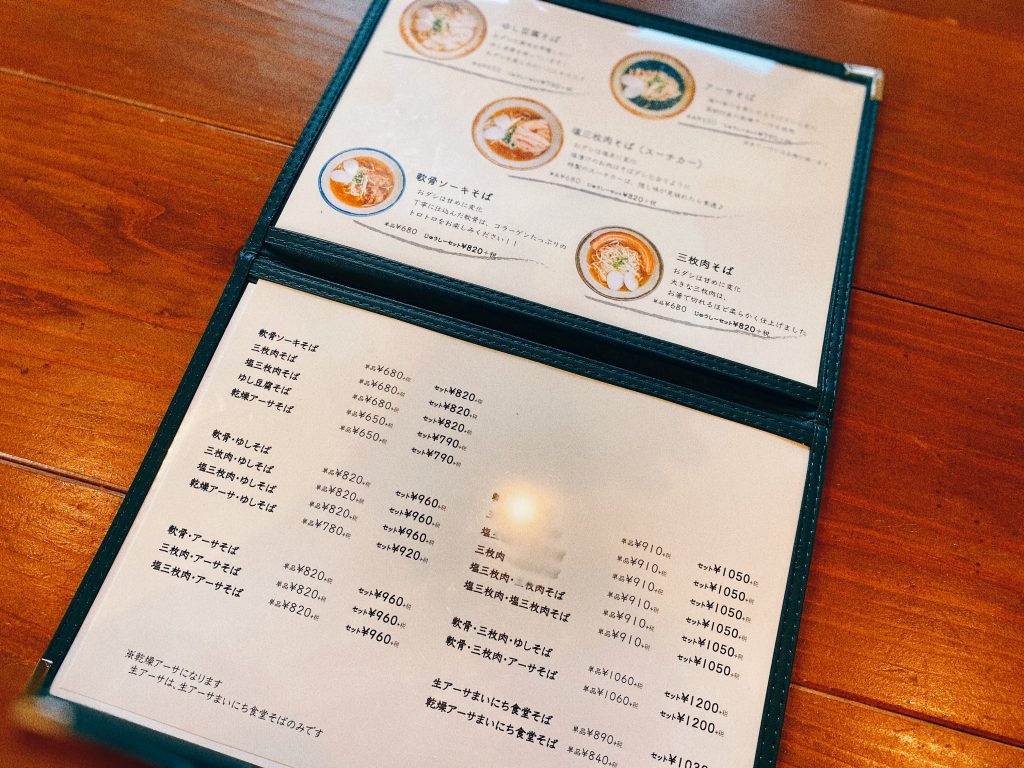 ゆし豆腐そば
¥650 じゅうしーセット¥790+税
アーサそば
塩三枚肉そば(スーチカー)
おダシは塩炙に変化
塩漬けのお肉はそばダシとなりように
特製のスーチカーは、隠し味が見破れたら素通♪
単品¥680 じゅうしーセット¥820+税
軟骨ソーキそば
おダシは甘めに変化
丁寧に仕込んだ軟骨は、コラーゲンたっぷりの
トロトロをお楽しみください!!
単品¥680 じゅうしーセット¥820+税
三枚肉そば
おダシは甘めに変化
大きな三枚肉は、
お箸で切れるほど柔らかく仕上げました
単品¥680 じゅうしーセット¥820+税
軟骨ソーキそば 単品¥680+税 セット¥820+税
三枚肉そば 単品¥680+税 セット¥820+税
塩三枚肉そば 単品¥680+税 セット¥820+税
ゆし豆腐そば 単品¥650+税 セット¥790+税
乾燥アーサそば 単品¥650+税 セット¥790+税
軟骨・ゆしそば 単品¥820+税 セット¥960+税
三枚肉・ゆしそば 単品¥820+税 セット¥960+税
塩三枚肉・ゆしそば 単品¥820+税 セット¥960+税
乾燥アーサ・ゆしそば 単品¥780+税 セット¥920+税
軟骨・アーサそば 単品¥820+税 セット¥960+税
三枚肉・アーサそば 単品¥820+税 セット¥960+税
塩三枚肉・アーサそば 単品¥820+税 セット¥960+税
※乾燥アーサになります
生アーサは、生アーサまいにち食堂そばのみです
単品¥910+税 セット¥1050+税
単品¥910+税 セット¥1050+税
塩三 単品¥910+税 セット¥1050+税
三枚肉 単品¥910+税 セット¥1050+税
塩三枚肉・三枚肉そば 単品¥910+税 セット¥1050+税
塩三枚肉・塩三枚肉そば 単品¥910+税 セット¥1050+税
軟骨・三枚肉・ゆしそば 単品¥1060+税 セット¥1200+税
軟骨・三枚肉・アーサそば 単品¥1060+税 セット¥1200+税
生アーサまいにち食堂そば 単品¥890+税 セット¥1030+税
乾燥アーサまいにち食堂そば 単品¥840+税